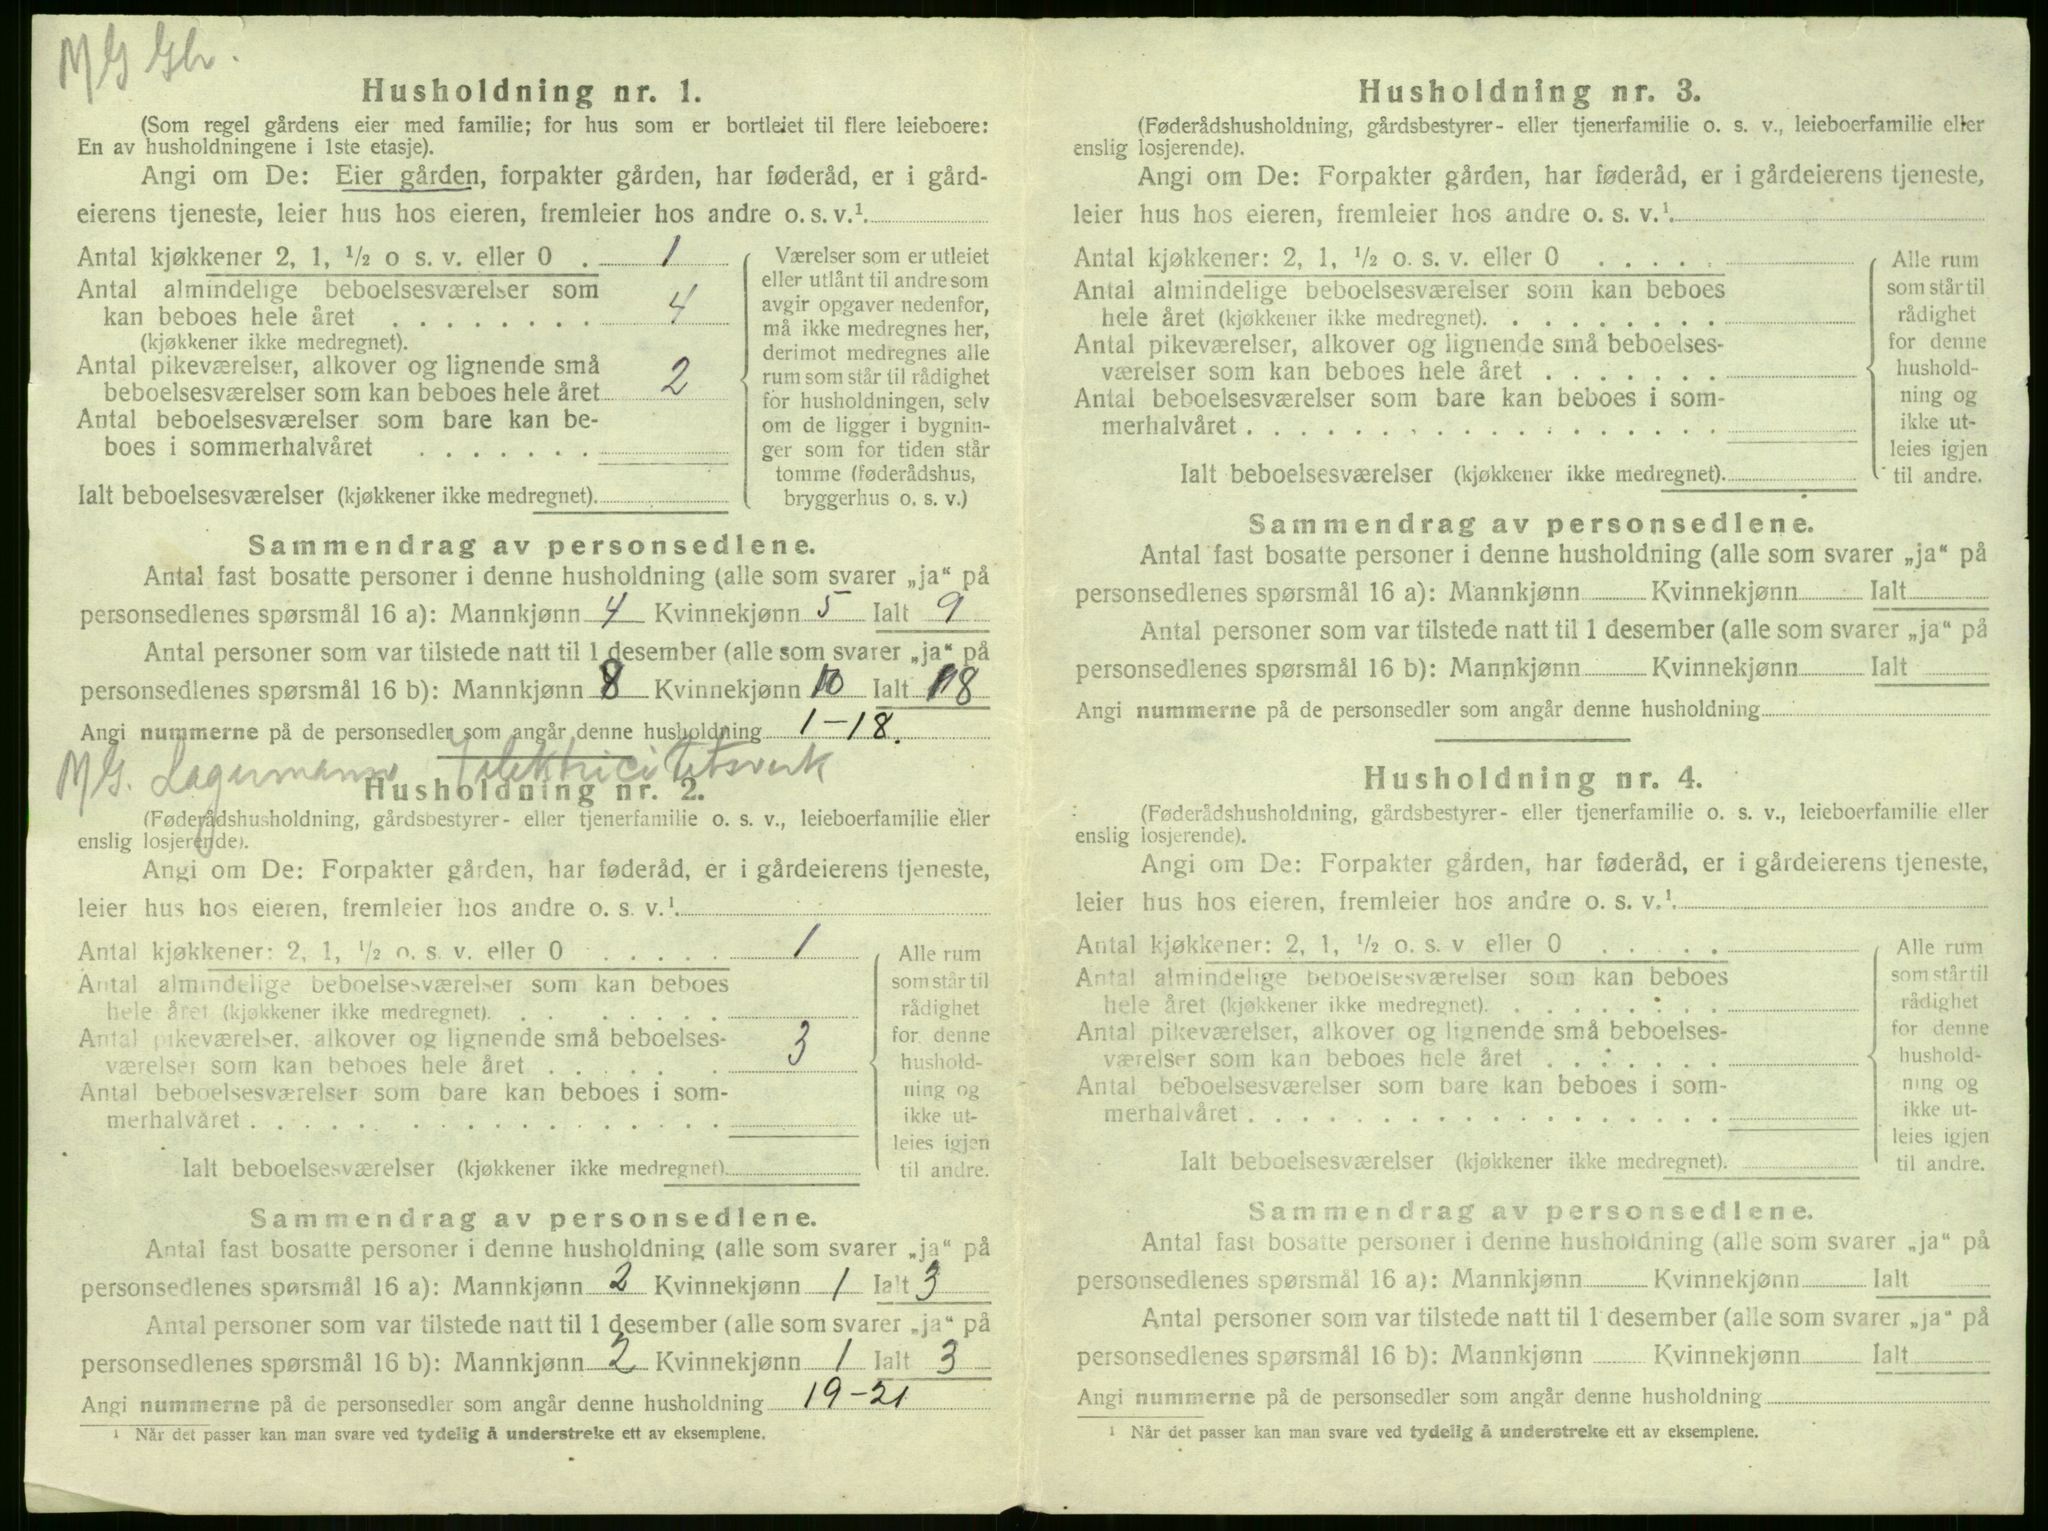 M G Gbr.
Husholdning nr. 1.
(Som regel gårdens eier med familie; for hus som er bortleiet til flere leieboere:
En av husholdningene i 1ste etasje).
Angi om De: Eier gården, forpakter gården, har føderåd, er i gård-
eierens tjeneste, leier hus hos eieren, fremleier hos andre o. s. v.¹.
Antal kjøkkener 2, 1, ½ o s. v. eller 0 . 1
Antal almindelige beboelsesværelser som
kan beboes hele året . . . . . . . . 4
(kjøkkener ikke medregnet).
Antal pikeværelser, alkover og lignende små
beboelsesværelser som kan beboes hele året 2
Antal beboelsesværelser som bare kan be-
boes i sommerhalvåret . . . . . . .
Ialt beboelsesværelser (kjøkkener ikke medregnet).
Værelser som er utleiet
eller utlånt til andre som
avgir opgaver nedenfor,
må ikke medregnes her,
derimot medregnes alle
rum som står til rådighet
for husholdningen, selv
om de ligger i bygnin-
ger som for tiden står
tomme (føderådshus,
bryggerhus o. s. v.)
Sammendrag av personsedlene.
Antal fast bosatte personer i denne husholdning (alle som svarer „ja“ på
personsedlenes spørsmål 16 a): Mannkjønn 4 Kvinnekjønn 5 Ialt 9
Antal personer som var tilstede natt til 1 desember (alle som svarer „ja“ på
personsedlenes spørsmål 16 b): Mannkjønn 8 Kvinnekjønn 10 Ialt 18
Angi nummerne på de personsedler som angår denne husholdning 1-18.
M G. Lagermann Elektricitetsverk
Husholdning nr. 2.
(Føderådshusholdning, gårdsbestyrer- eller tjenerfamilie o. s. v., leieboerfamilie eller
enslig losjerende).
Angi om De: Forpakter gården, har føderåd, er i gårdeierens tjeneste,
leier hus hos eieren, fremleier hos andre o. s. v.¹.
Antal kjøkkener: 2, 1, ½ o. s. v. eller 0 . . . . . 1
Antal almindelige beboelsesværelser som kan beboes
hele året (kjøkkener ikke medregnet). . . . . . . .
Antal pikeværelser, alkover og lignende små beboelses-
værelser som kan beboes hele året . . . . . . . 3
Antal beboelsesværelser som bare kan beboes i som-
merhalvåret . . . . . . . . . . . . . . . . . .
Ialt beboelsesværelser (kjøkkener ikke medregnet)
Alle rum
som står til
rådighet
for denne
hushold-
ning og
ikke ut-
leies igjen
til andre.
Sammendrag av personsedlene.
Antal fast bosatte personer i denne husholdning (alle som svarer „ja“ på
personsedlenes spørsmål 16 a): Mannkjønn 2 Kvinnekjønn 1 Ialt 3
Antal personer som var tilstede natt til 1 desember (alle som svarer „ja“ på
personsedlenes spørsmål 16 b): Mannkjønn 2 Kvinnekjønn 1 Ialt 3
Angi nummerne på de personsedler som angår denne husholdning 19-21
¹ Når det passer kan man svare ved tydelig å understreke ett av eksemplene.
Husholdning nr. 3.
(Føderådshusholdning, gårdsbestyrer- eller tjenerfamilie o. s. v., leieboerfamilie eller
enslig losjerende).
Angi om De: Forpakter gården, har føderåd, er i gårdeierens tjeneste,
leier hus hos eieren, fremleier hos andre o. s. v.¹.
Antal kjøkkener: 2, 1, ½ o. s. v. eller 0 . . . . .
Antal almindelige beboelsesværelser som kan beboes
hele året (kjøkkener ikke medregnet). . . . . . . . .
Antal pikeværelser, alkover og lignende små beboelses-
værelser som kan beboes hele året . . . . . . .
Antal beboelsesværelser som bare kan beboes i som-
merhalvåret . . . . . . . . . . . . . . . . . .
Ialt beboelsesværelser (kjøkkener ikke medregnet).
Alle rum
som står til
rådighet
for denne
hushold-
ning og
ikke ut-
leies igjen
til andre.
Sammendrag av personsedlene.
Antal fast bosatte personer i denne husholdning (alle som svarer „ja“ på
personsedlenes spørsmål 16 a): Mannkjønn Kvinnekjønn Ialt
Antal personer som var tilstede natt til 1 desember (alle som svarer „ja“ på
personsedlenes spørsmål 16 b): Mannkjønn Kvinnekjønn Ialt
Angi nummerne på de personsedler som angår denne husholdning
Husholdning nr. 4.
(Føderådshusholdning, gårdsbestyrer- eller tjenerfamilie o. s. v., leieboerfamilie eller
enslig losjerende).
Angi om De: Forpakter gården, har føderåd, er i gårdeierens tjeneste,
leier hus hos eieren, fremleier hos andre o. s. v.¹.
Antal kjøkkener: 2, 1, ½ o. s. v eller 0 . . . . .
Antal almindelige beboelsesværelser som kan beboes
hele året (kjøkkener ikke medregnet). . . . . . . . .
Antal pikeværelser, alkover og lignende små beboelses-
værelser som kan beboes hele året . . . . . . .
Antal beboelsesværelser som bare kan beboes i som-
merhalvåret . . . . . . . . . . . . . . . . . .
Ialt beboelsesværelser (kjøkkener ikke medregnet).
Alle rum
som står til
rådighet
for denne
hushold-
ning og
ikke ut-
leies igjen
til andre.
Sammendrag av personsedlene.
Antal fast bosatte personer i denne husholdning (alle som svarer „ja“ på
personsedlenes spørsmål 16 a): Mannkjønn Kvinnekjønn Ialt
Antal personer som var tilstede natt til 1 desember (alle som svarer „ja“ på
personsedlenes spørsmål 16 b): Mannkjønn Kvinnekjønn Ialt
Angi nummerne på de personsedler som angår denne husholdning
¹ Når det passer kan man svare ved tydelig å understreke ett av eksemplene.